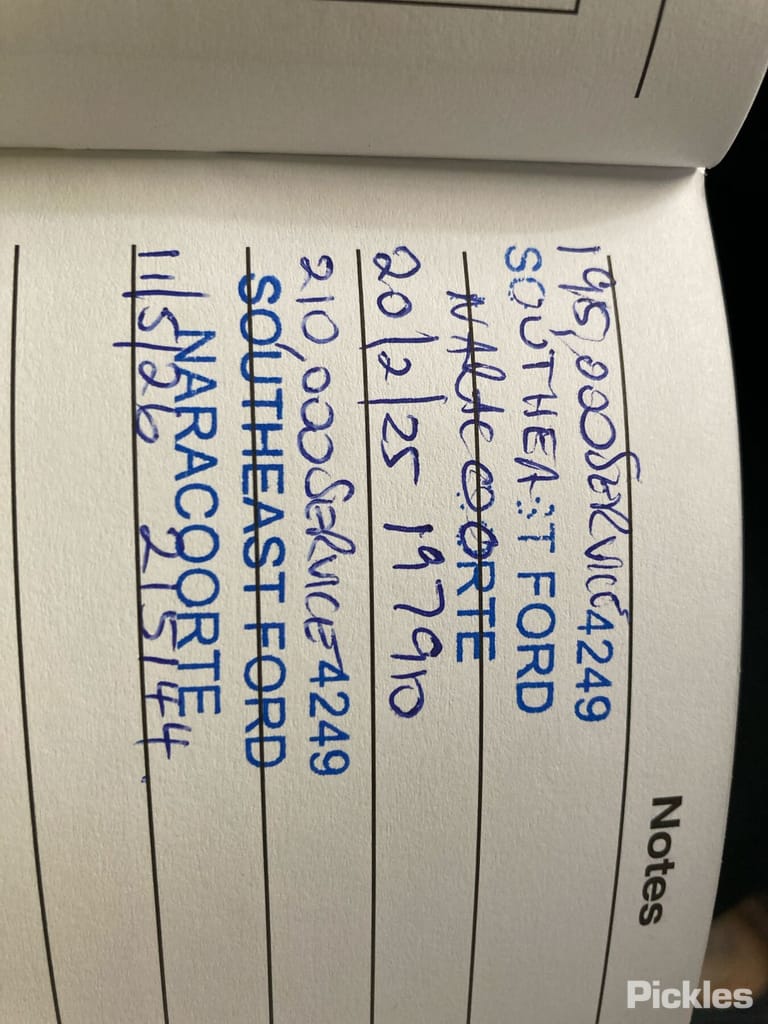 Notes
195,000 SERVICE 4249
SOUTHEAST FORD
NARACOORTE
20/2/25 197910
210,000 SERVICE 4249
SOUTHEAST FORD
NARACOORTE
11/5/26 215144
Pickles